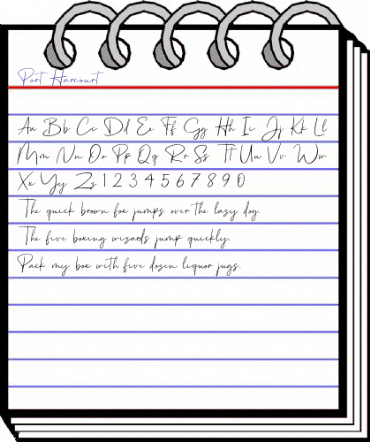 Port Harcourt
Aa Bb Cc Dd Ee Ff Gg Hh Ii Jj Kk Ll
Mm Nn Oo Pp Qq Rr Ss Tt Uu Vv Ww
Xx Yy Zz 1 2 3 4 5 6 7 8 9 0
The quick brown fox jumps over the lazy dog.
The five boxing wizards jump quickly.
Pack my box with five dozen liquor jugs.